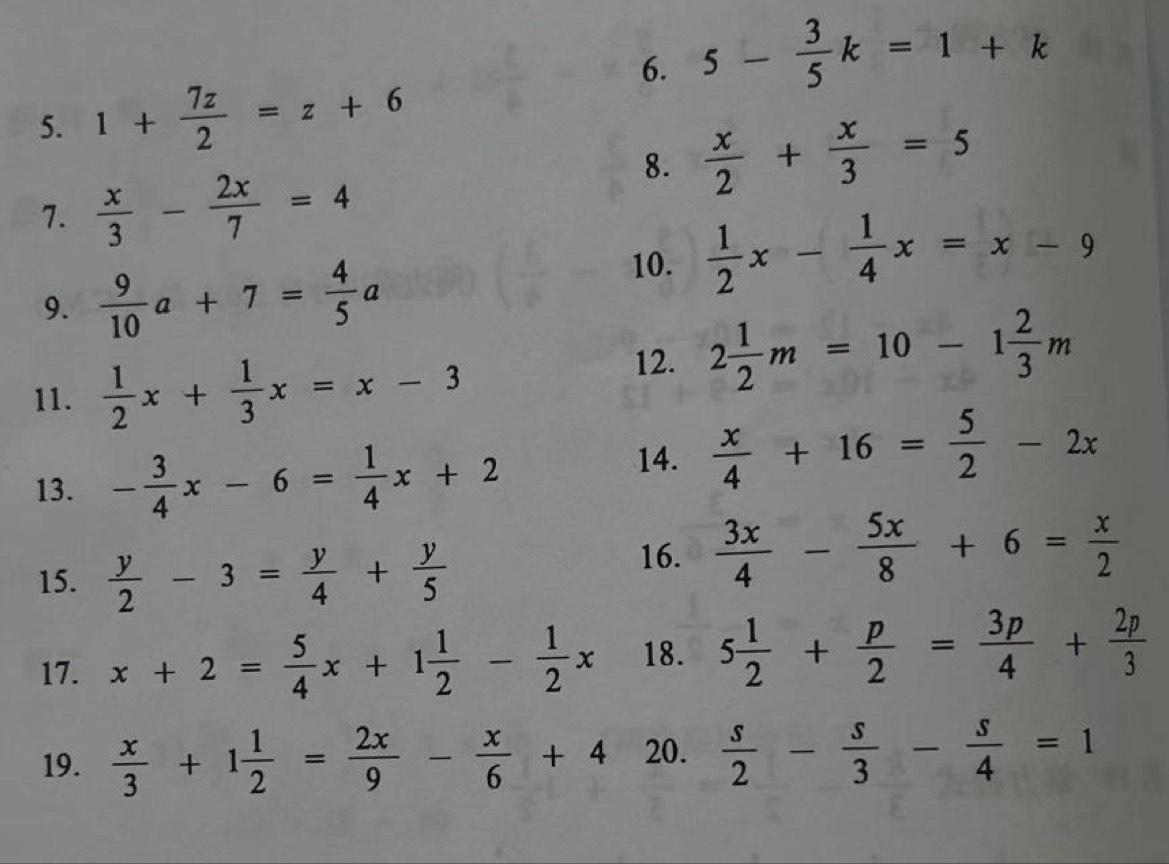 5. 1 + 7z/2 = z + 6
6. 5 − 3/5 k = 1 + k
7. x/3 − 2x/7 = 4
8. x/2 + x/3 = 5
9. 9/10 a + 7 = 4/5 a
10. 1/2 x − 1/4 x = x − 9
11. 1/2 x + 1/3 x = x − 3
12. 2 1/2 m = 10 − 1 2/3 m
13. −3/4 x − 6 = 1/4 x + 2
14. x/4 + 16 = 5/2 − 2x
15. y/2 − 3 = y/4 + y/5
16. 3x/4 − 5x/8 + 6 = x/2
17. x + 2 = 5/4 x + 1 1/2 − 1/2 x
18. 5 1/2 + p/2 = 3p/4 + 2p/3
19. x/3 + 1 1/2 = 2x/9 − x/6 + 4
20. s/2 − s/3 − s/4 = 1